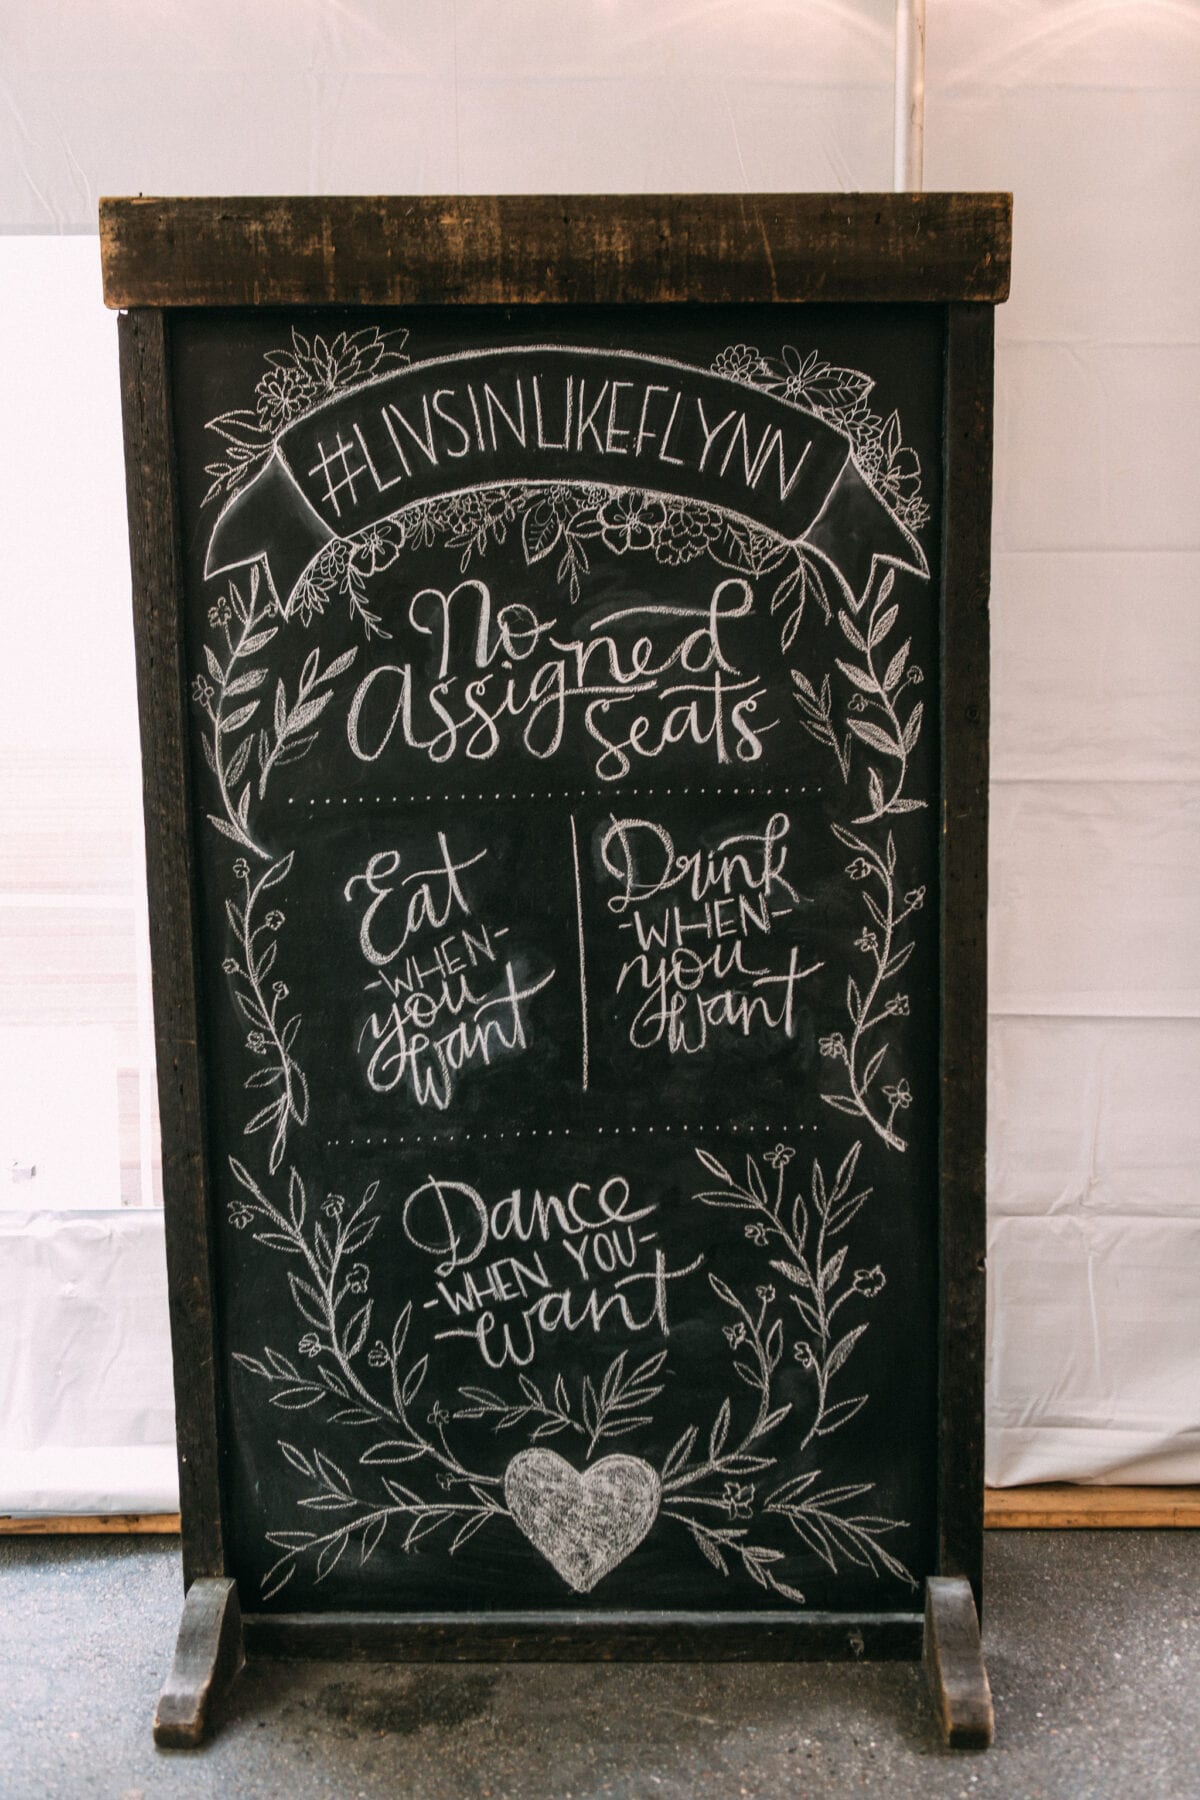 #LIVSINLIKEFLYNN
No
Assigned
Seats
Eat
-WHEN-
you
want
Drink
-WHEN-
you
want
Dance
-WHEN YOU-
want